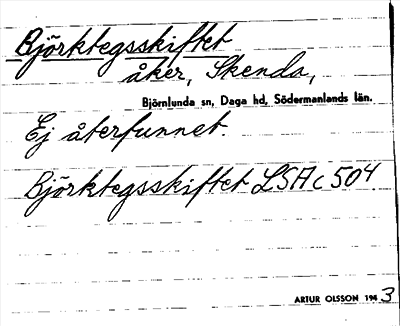 Björktegsskiftet
åker, Skenda,
Björnlunda sn, Daga hd, Södermanlands län.
Ej återfunnet
Björktegsskiftet LSA c 504
ARTUR OLSSON 1943